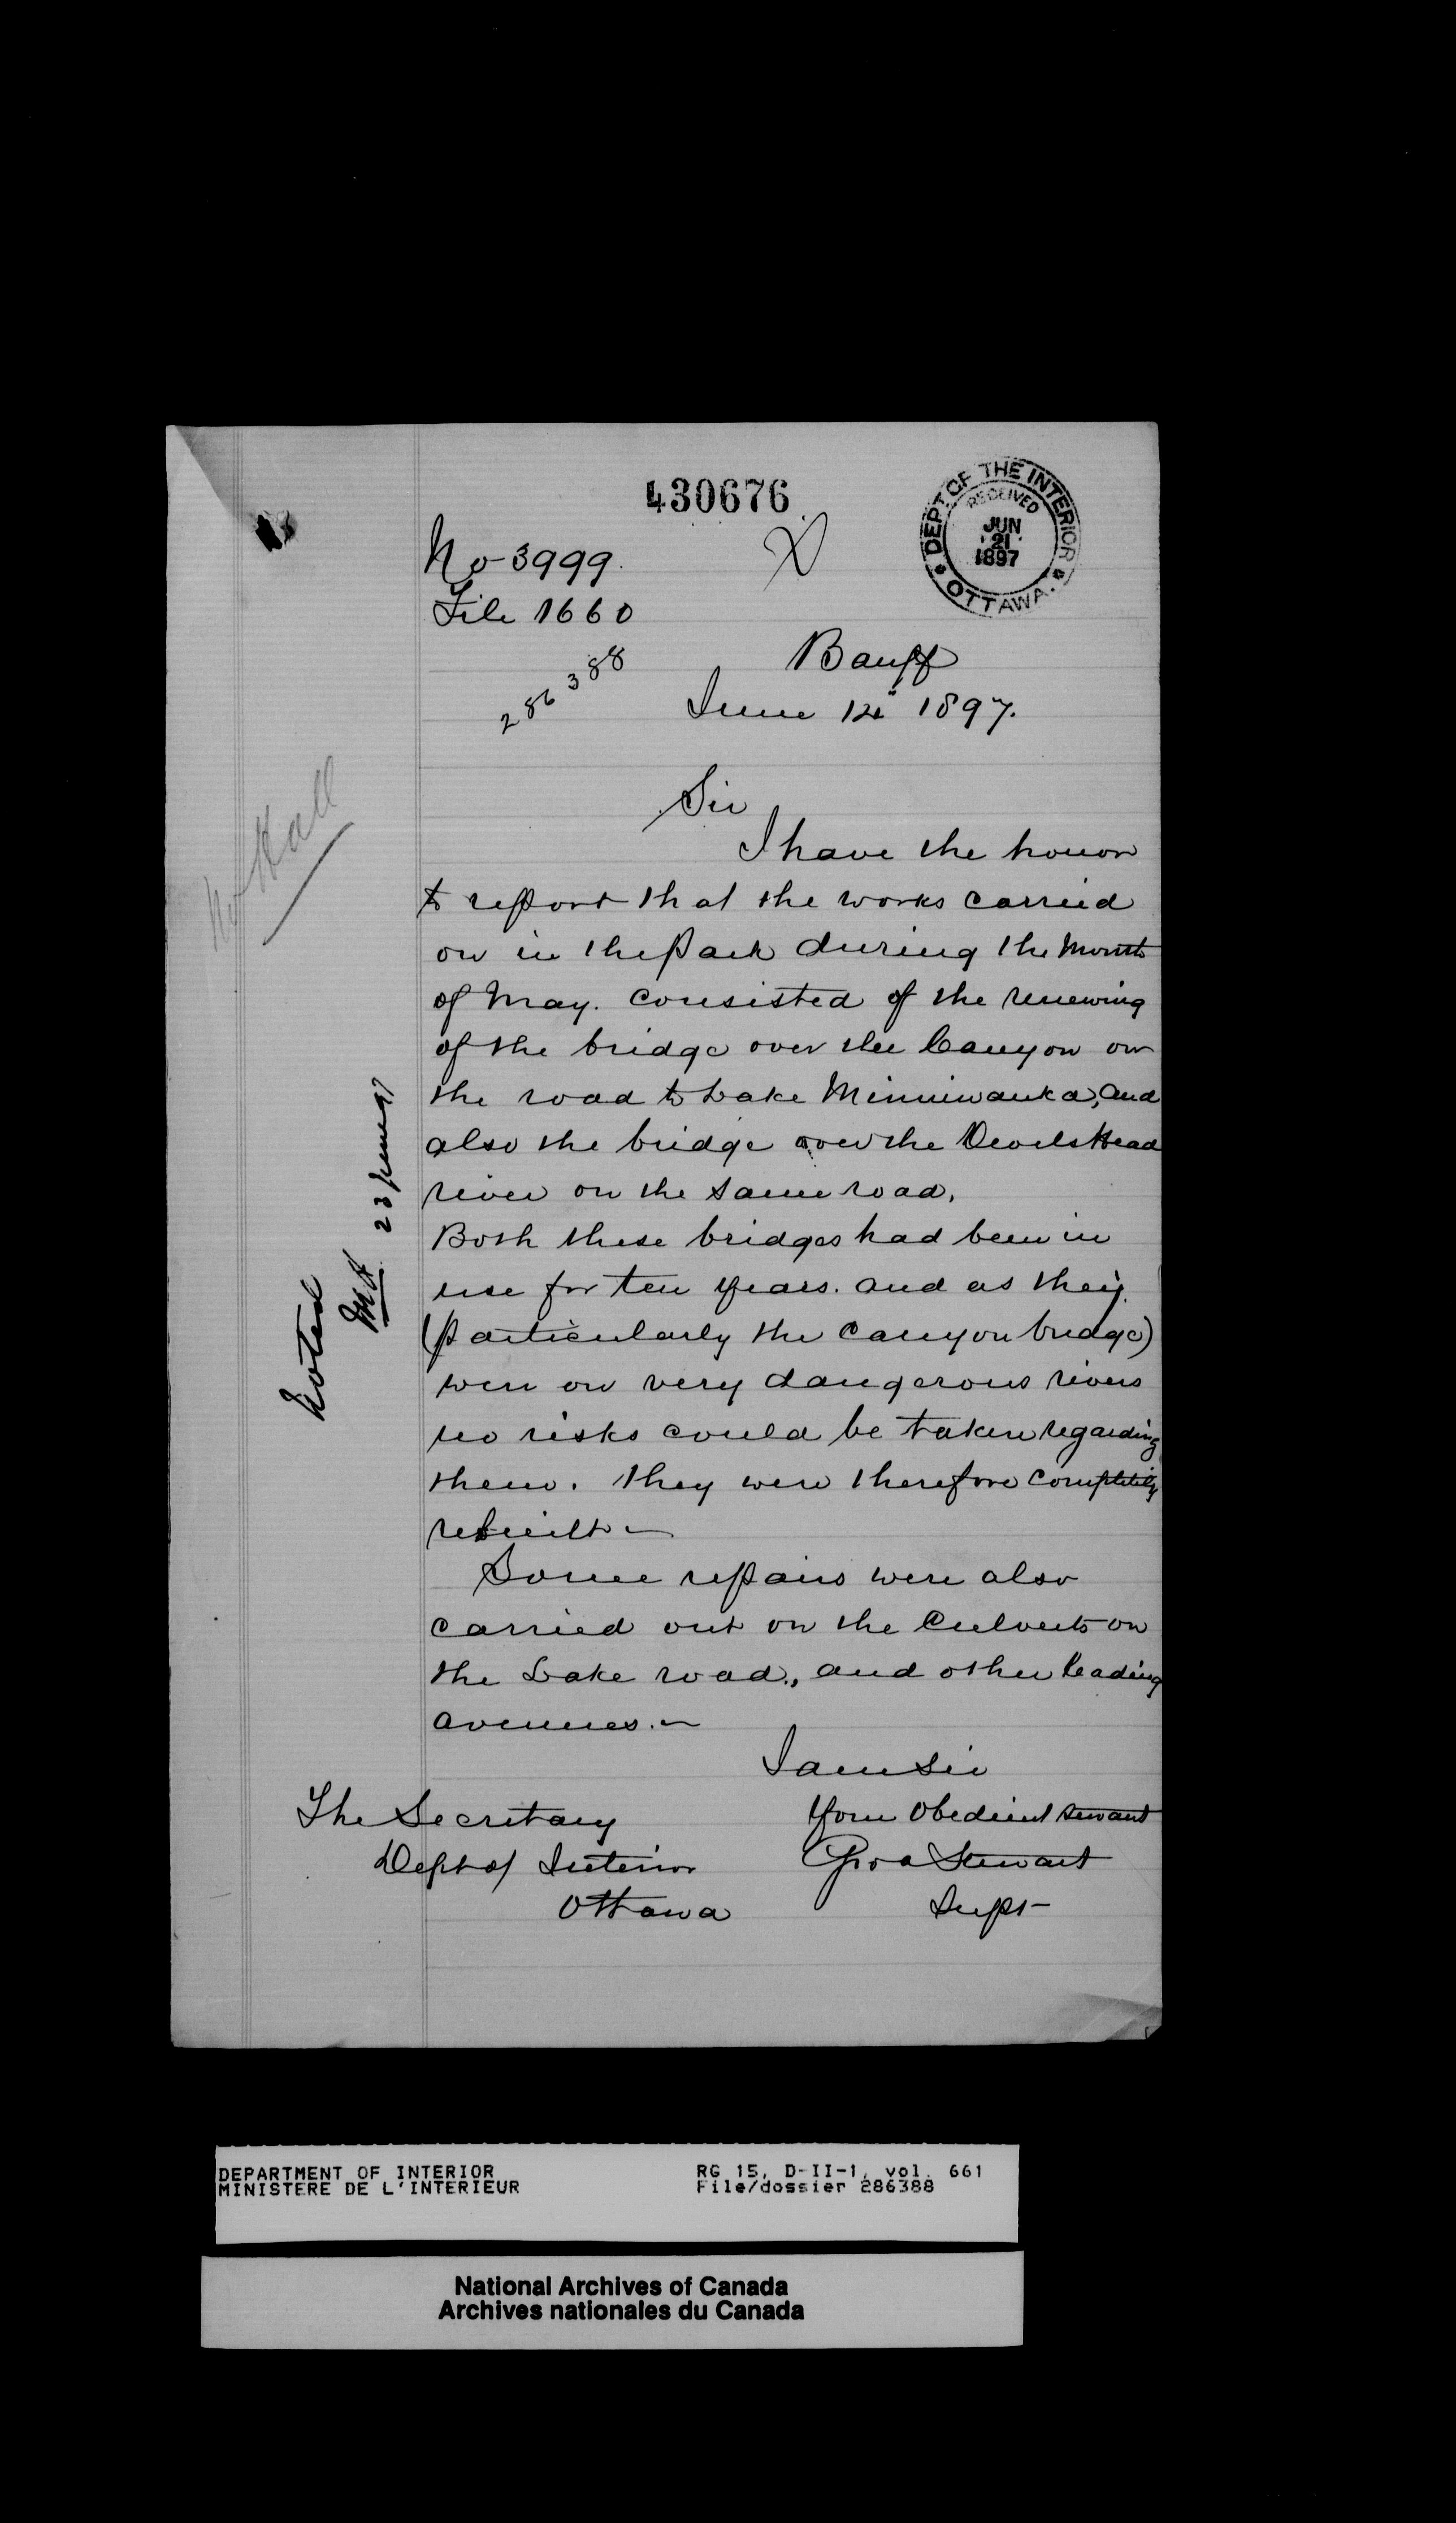 430676
DEPT. OF THE INTERIOR
RECEIVED
JUN
21
1897
OTTAWA.
No 3999.
File 1660
286388
Banff
June 14" 1897.
Sir
I have the honor
to report that the works carried
on in the Park during the Month
of May. consisted of the renewing
of the bridge over the Canyon on
the road to Lake Minniwanka, and
also the bridge over the Devils Head
river on the same road.
Both these bridges had been in
use for ten years. and as they
(particularly the Canyon bridge)
were on very dangerous rivers
no risks could be taken regarding
them. They were therefore completely
rebuilt —
Some repairs were also
carried out on the Culverts on
the Lake road., and other leading
avenues. —
I am Sir
Your Obedient Servant
Geo A Stewart
Supt
The Secretary
Dept of Interior
Ottawa
Mr Hall
Noted
23 June 97
DEPARTMENT OF INTERIOR
MINISTERE DE L'INTERIEUR
RG 15, D-II-1, vol. 661
File/dossier 286388
National Archives of Canada
Archives nationales du Canada